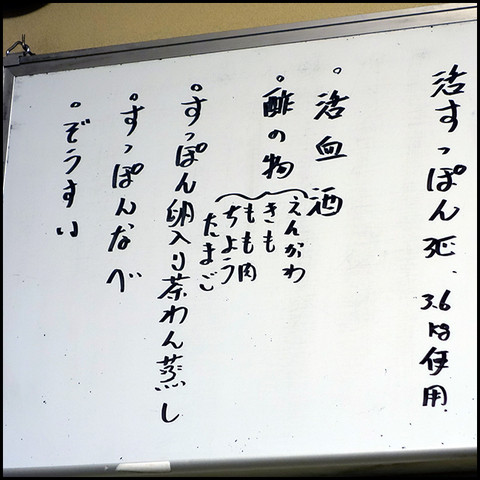 活すっぽん死、3.6kg使用
°活血酒
°酢の物
えんがわ
きも
もも肉
ちょう
たまご
°すっぽん卵入り茶わん蒸し
°すっぽんなべ
°ぞうすい